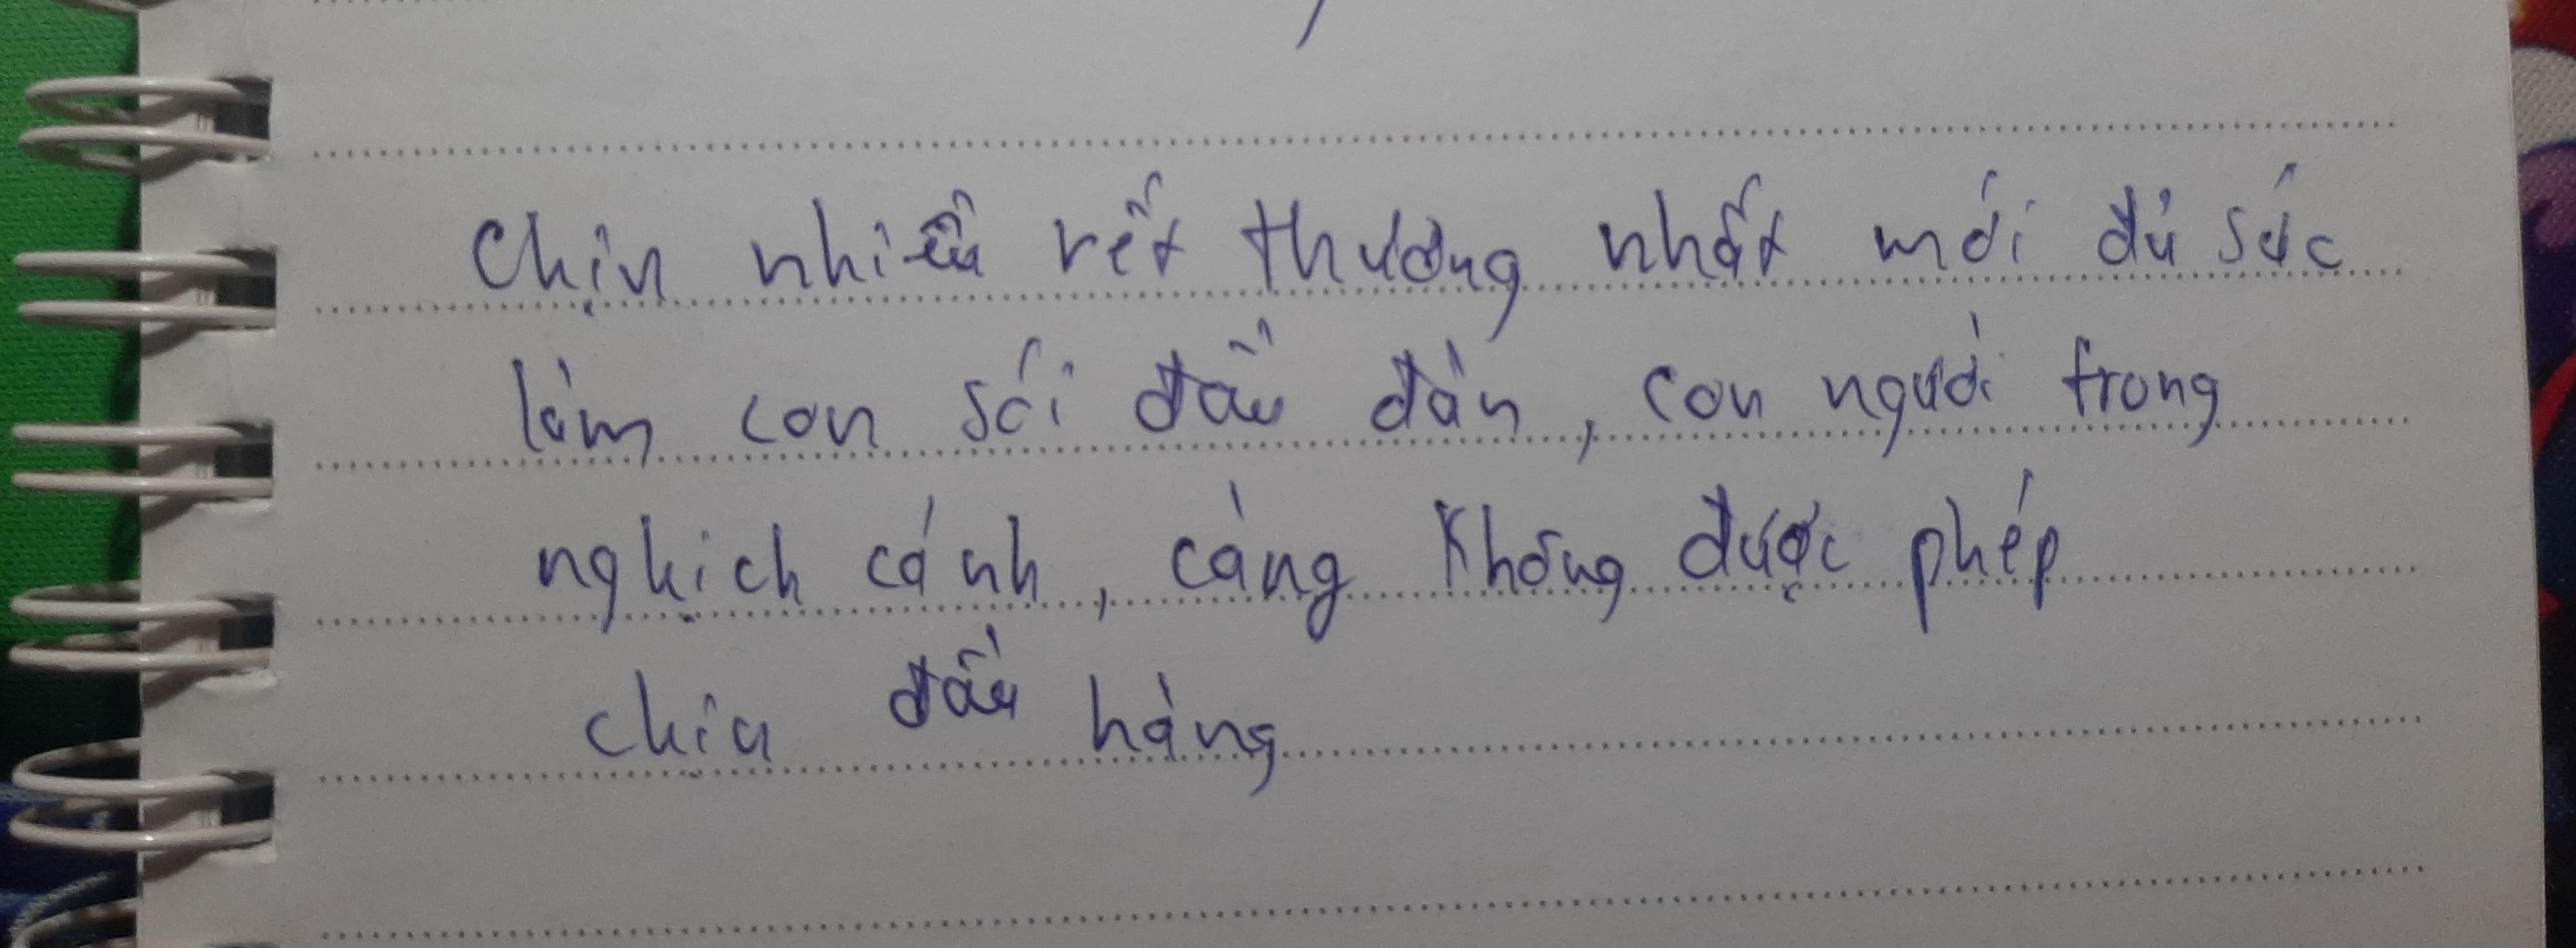 Chịu nhiều vết thương nhất mới đủ sức
làm con sói đầu đàn, con người trong
nghịch cảnh, càng không được phép
chịu đầu hàng